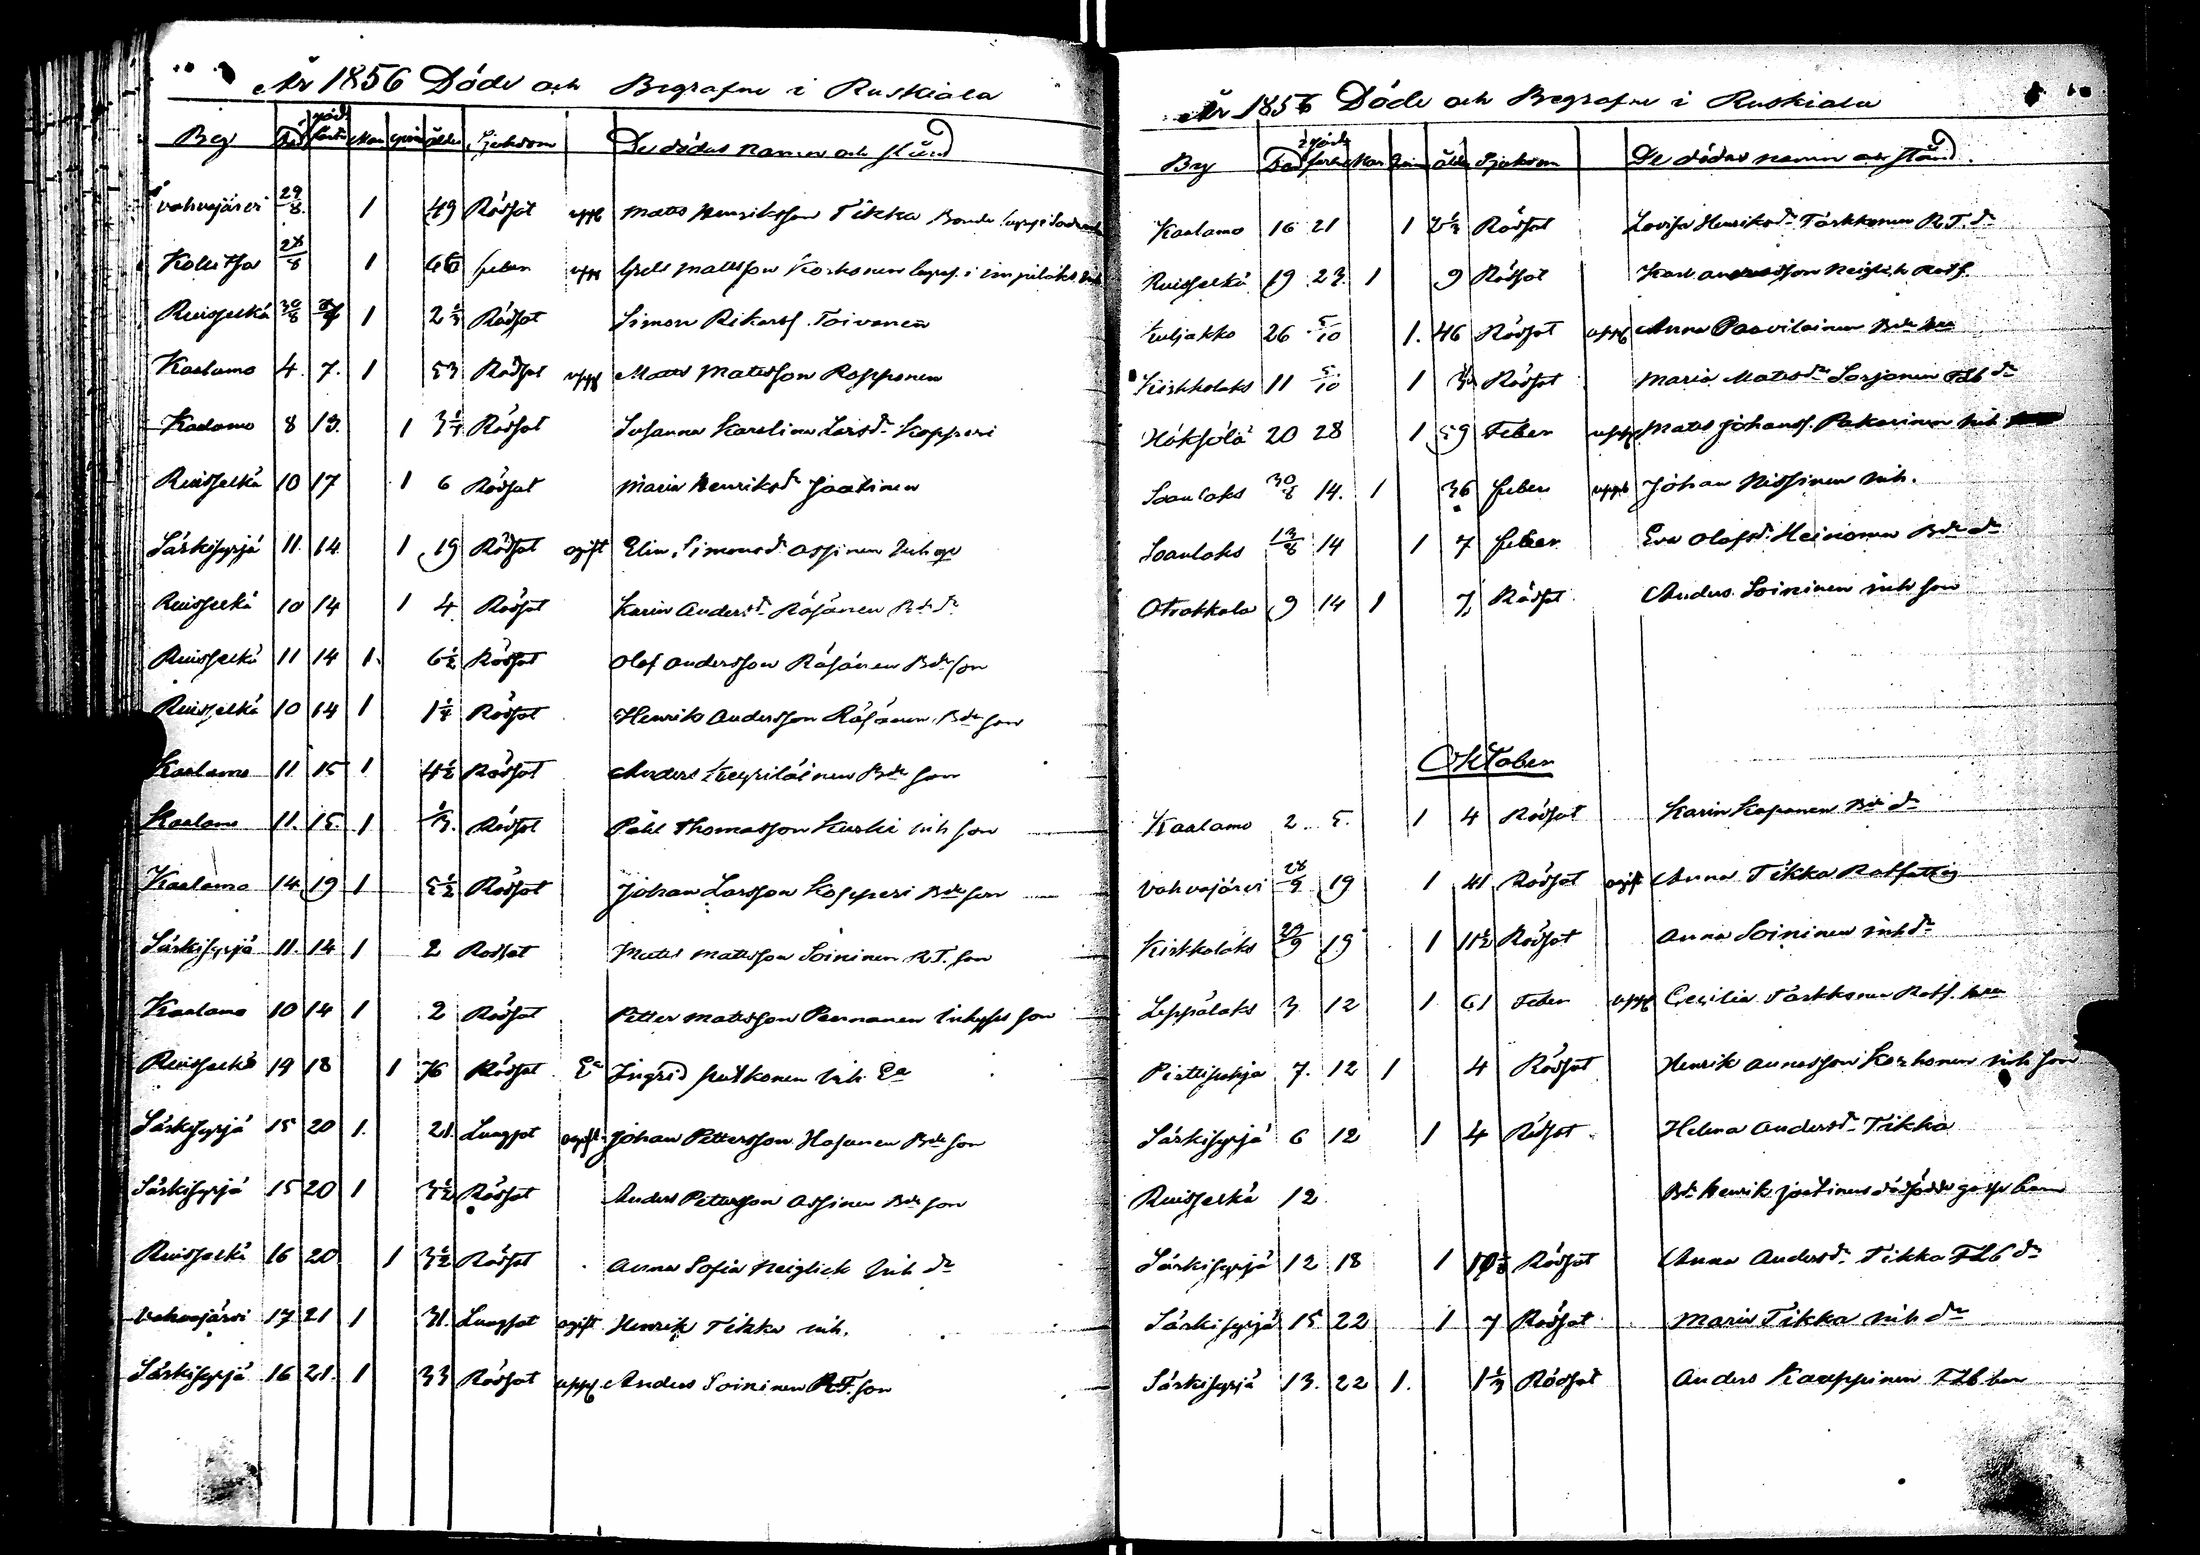 År 1856 Döde och Begrafne i Ruskiala
By Död Man ålder Sjukdom De dödas namn och stånd
Vahvajärvi 29/8 1 49 Rödsot uppb Matts Henriksson Tikka Bonde
28/8 1 feber uppb Matsson Korhonen i Impilaks
Ruisselkä 30/8 1 2 1/2 Rödsot Simon Rikarsf. Toivanen
Kaalamo 4. 7. 1 53 Rödsot uppb Matts Matsson Ropponen
Kaalamo 8 13. 1 Rödsot Susanna Karolina Larsdr Kopperi
Ruisselkä 10 17 1 6 Rödsot Maria Henriksdr Jaatinen
Särkisyrjä 11. 14 1 19 Rödsot ogift Elin Simonsdr Assinen
Ruisselkä 10 14 1 4 Rödsot Karin Andersdr Räsänen
Ruisselkä 11 14 1. 6 1/2 Rödsot Olof Andersson Räsänen Bde son
Ruisselkä 10 14 1 1 1/4 Rödsot Henrik Andersson Räsänen Bde son
Kaalamo 11. 15 1 4 1/2 Rödsot Anders Bde son
Kaalamo 11. 15. 1 1/3. Rödsot Påhl Thomasson Kurki inh son
Kaalamo 14 19 1 5 1/2 Rödsot Johan Larsson Kopperi Bde son
Särkisyrjä 11. 14 1 2 Rodsot Matts Mattsson Soininen R.T. son
Kaalamo 10 14 1 2 Rödsot Petter Matsson Pennanen inhyses son
Ruisselkä 14 18 1 76 Rödsot Ea Ingrid inh Ea
Särkisyrjä 15 20 1. 21. Lungsot ogift Johan Pettersson Hosanen Bde son
Särkisyrjä 15 20 1 3 1/2 Rödsot Anders Petersson Assinen Bde son
Ruisselkä 16 20 1 3 1/2 Rödsot Anna Sofia Neiglick inh dr
Vahvajärvi 17 21 1 31. Lungsot ogift Henrik Tikka inh.
Särkisyrjä 16 21. 1 33 Rödsot uppb Anders Soininen R.T. son
År 1856 Döde och Begrafne i Ruskiala
By Död Man ålder Sjukdom De dödas namn och stånd.
Kaalamo 16 21 1 Rödsot Lovisa Henriksdr Tarkkonen R.T. dr
Ruisselkä 19 23. 1 9 Rödsot Karl Andersson Neiglick
Kuljakko 26 5/10 1. 46 Rödsot uppb Anna Paavilainen Bde hu
Kirkkolaks 11 5/10 1 Rödsot Maria Matsdr Sorjonen dr
20 28 1 59 Feber uppb Matts Johansf. Pakarinen inh
Soanlaks 30/8 14. 1 36 feber uppb Johan Nissinen inh.
Soanlaks 13/8 14 1 7 feber Eva Olofsdr Heinonen Bde dr
Otrakkala 9 14 1 Rödsot Anders Soininen inh son
Oktober
Kaalamo 2. 5. 1 4 Rödsot Karin Kaponen Bde dr
Vahvajärvi 28/9 19 1 41 Rödsot ogift Anna Tikka Rotfattig
Kirkkolaks 29/9 19 1 11 1/2 Rödsot Anna Soininen inh dr
Leppälaks 3 12 1 61 Feber uppb Cecilia Tarkkonen
Pirttipohja 7. 12 1 4 Rödsot Henrik Korhonen inh son
Särkisyrjä 6 12 1 4 Rödsot Helena Andersdr Tikka
Ruisselkä 12 Bde Henrik Jaatinens dödfödde gosse barn
Särkisyrjä 12 18 1 Rödsot Anna Andersdr Tikka dr
Särkisyrjä 15 22 1 7 Rödsot Maria Tikka inh dr
Särkisyrjä 13. 22 1. 1 1/3 Rödsot Anders Kaappinen